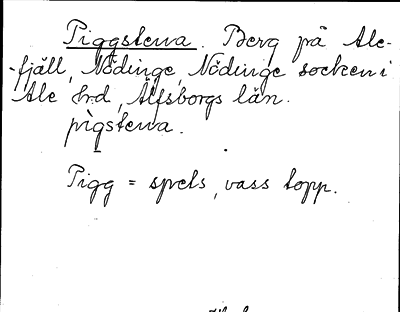 Piggstena. Berg på Ale-
-fjäll, Nödinge, Nödinge socken i
Ale hrd, Älfsborgs län.
pigstena.
Pigg = spets, vass topp.